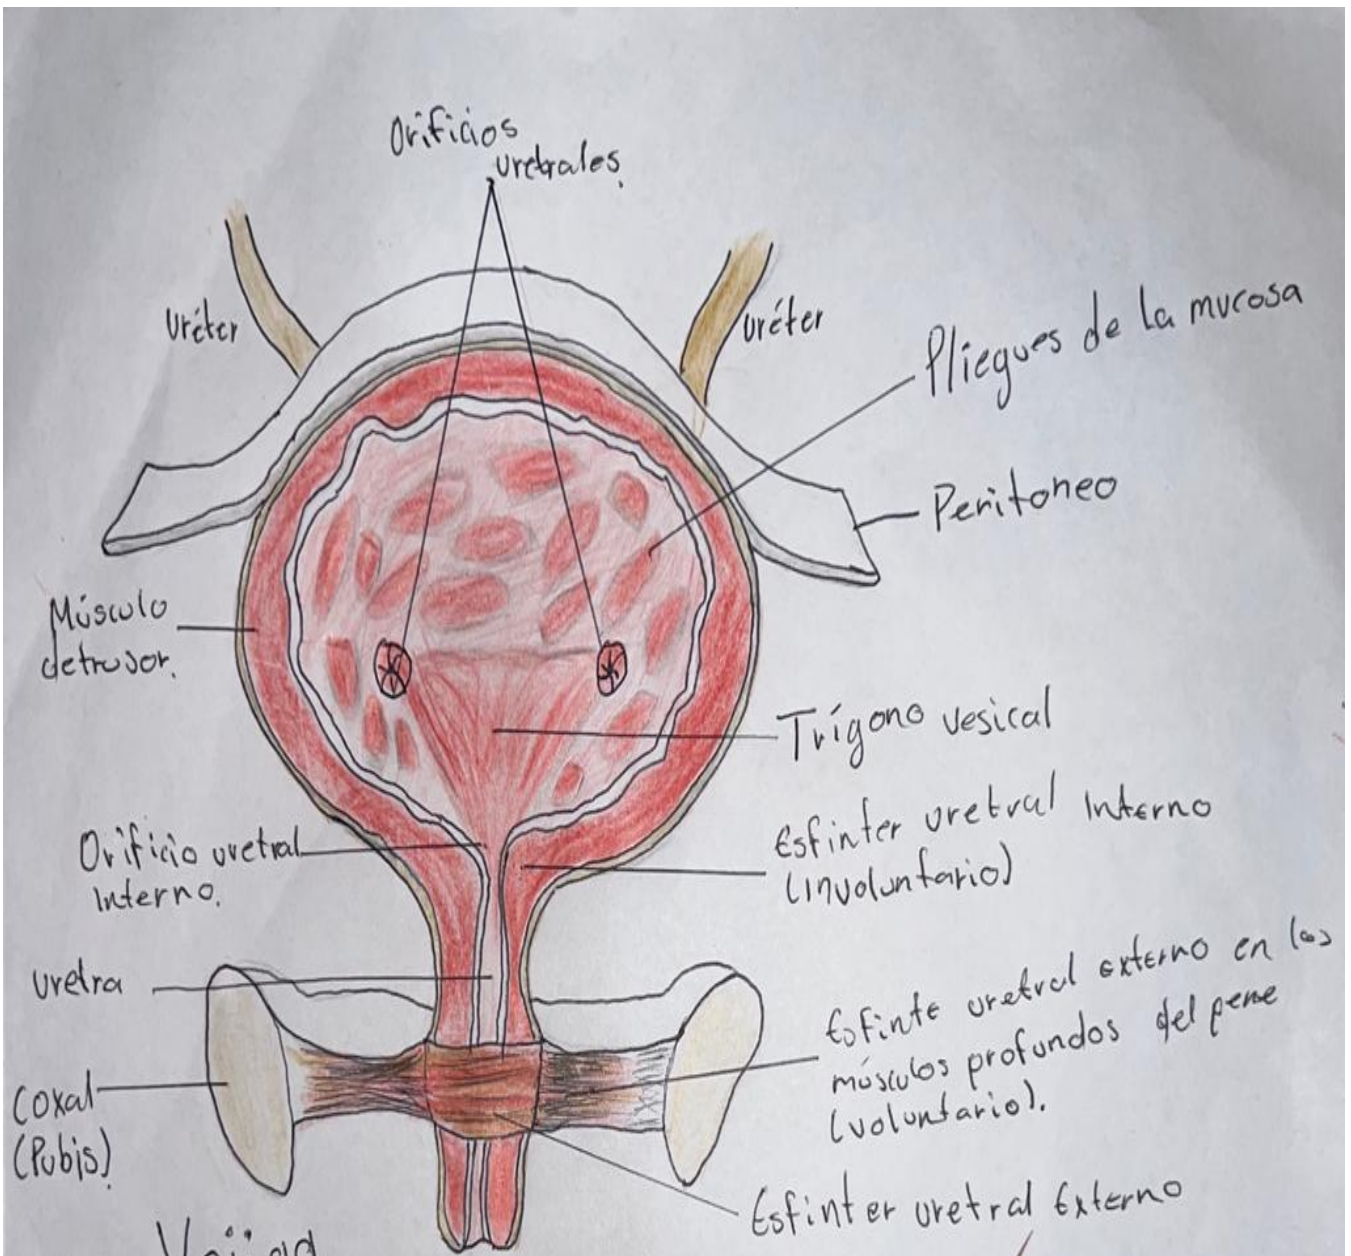 Orificios
uretrales.
Uréter
uréter
Pliegues de la mucosa
Peritoneo
Músculo
detrusor.
Trígono vesical
Orificio uretral
Interno.
Esfinter uretral Interno
(involuntario)
uretra
Esfinte uretral externo en los
músculos profundos del pene
(voluntario).
Coxal
(Pubis)
Esfinter uretral Externo